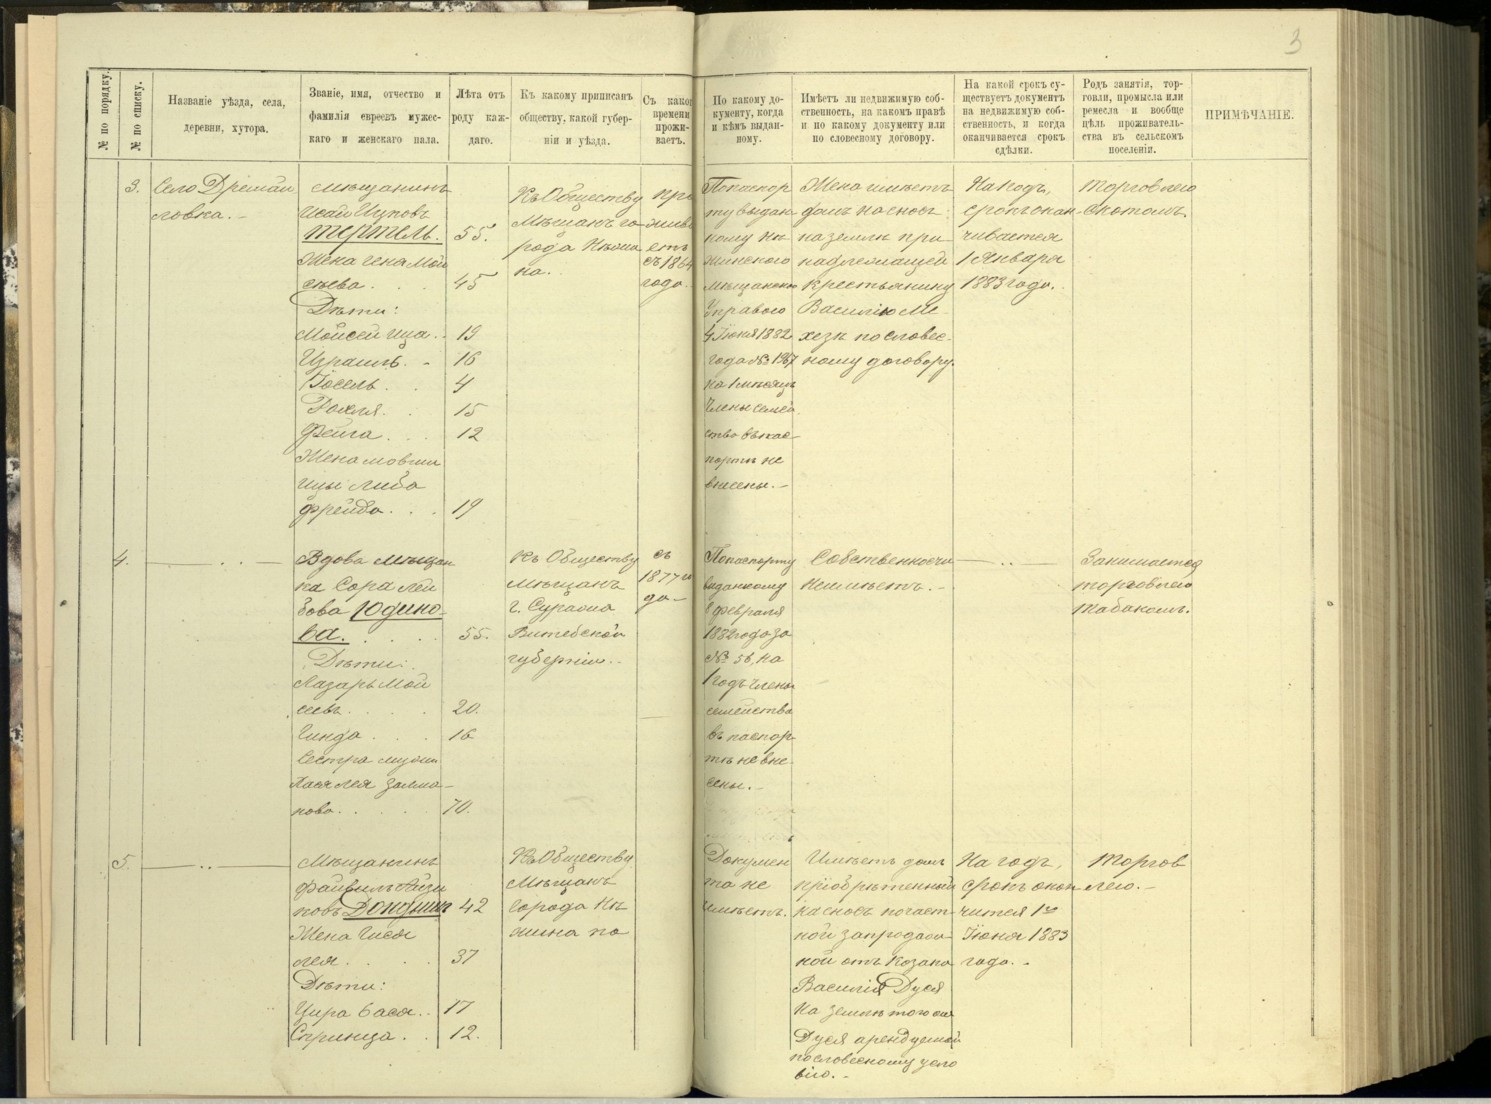 3
№ по порядку.
№ по списку.
Названіе уѣзда, села,
деревни, хутора.
Званіе, имя, отчество и
фамилія евреевъ мужес-
каго и женскаго пала.
Лѣта отъ
роду каж-
даго.
Къ какому приписанъ
обществу, какой губер-
ніи и уѣзда.
Съ какого
времени
прожи-
ваетъ.
По какому до-
кументу, когда
и кѣмъ выдан-
ному.
Имѣетъ ли недвижимую соб-
ственность, на какомъ правѣ
и по какому документу или
по словесному договору.
На какой срокъ су-
ществуетъ документъ
на недвижимую соб-
ственность, и когда
оканчивается срокъ
сдѣлки.
Родъ занятія, тор-
говли, промысла или
ремесла и вообще
цѣль проживатель-
ства въ сельскомъ
поселеніи.
ПРИМѢЧАНІЕ.
3.
Село Дремай
ловка.
Мѣщанинъ
Исай Ицковъ
Тертель. 55.
Жена Гена Мой
сѣева. 45
Дѣти:
Мойсей Ица 19
Израиль. 16
Іосель. 4
Рохля. 15
Фейга. 12
Жена Мовши
Ицы Либа
Фрейда. 19
Къ Обществу
Мѣщанъ го-
рода Нѣжи
на.
про
жива
етъ
съ 1864
года.
По паспор
ту выдан
ному Нѣ
жинскою
Мѣщанскою
Управою
4 Іюня 1882
года № 1267
на 1 мѣсяцъ
Члены семей
ства въ пас-
портѣ не
внесены.
Жена имѣетъ
домъ на сносъ
на землѣ при-
надлежащей
крестьянину
Василію Ме
хезѣ по словес-
ному договору.
На годъ,
срокъ окан-
чивается
1 Января
1883 года.
Торговлею
скотомъ.
4.
Вдова Мѣщан
ка Сора Лей
бова Юдино-
ва. 55.
Дѣти:
Лазарь Мой
сеевъ 20.
Гинда 16
Сестра мужа
Хася Лея Залма-
нова. 70.
Къ Обществу
Мѣщанъ
г. Суража
Витебской
губерніи.
съ
1877 го
да
По паспорту
выданному
8 февраля
1882 года за
№ 56, на
1 годъ члены
семейства
въ паспор
тѣ не вне
сены.
Собственности
неимѣетъ.
Занимается
торговлею
табакомъ.
5.
Мѣщанинъ
Файвиль Айзи
ковъ Дондышъ 42
Жена Гися
Лея. 37
Дѣти:
Цира Бася. 17
Спринца. 12.
Къ Обществу
Мѣщанъ
города Нѣ
жина по
Докумен
та не
имѣетъ.
Имѣетъ домъ
пріобрѣтенный
на сносъ по част-
ной запродаж-
ной отъ Козака
Василія Дуся
на землѣ того же
Дуся арендуемой
по словесному усло
вію.
На годъ,
срокъ окон-
чится 1го
Іюня 1883
года.
Торгов
лею.